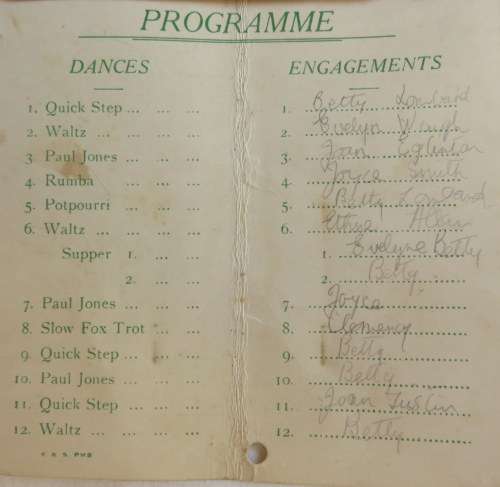 PROGRAMME
DANCES ENGAGEMENTS
1. Quick Step ... ... ... 1. Betty Lombard
2. Waltz ... ... ... ... 2. Evelyn Waugh
3. Paul Jones ... ... ... 3. Joan Eglinton
4. Rumba ... ... ... 4. Joyce Smith
5. Potpourri ... ... ... 5. Betty Lombard
6. Waltz ... ... ... ... 6. Ethye Allen
Supper 1. ... ... 1. Evelyne Betty
2. ... ... 2. Betty
7. Paul Jones ... ... ... 7. Joyce
8. Slow Fox Trot ... ... 8. Clemency
9. Quick Step ... ... ... 9. Betty
10. Paul Jones ... ... ... 10. Betty
11. Quick Step ... ... ... 11. Joan Tustin
12. Waltz ... ... ... ... 12. Betty